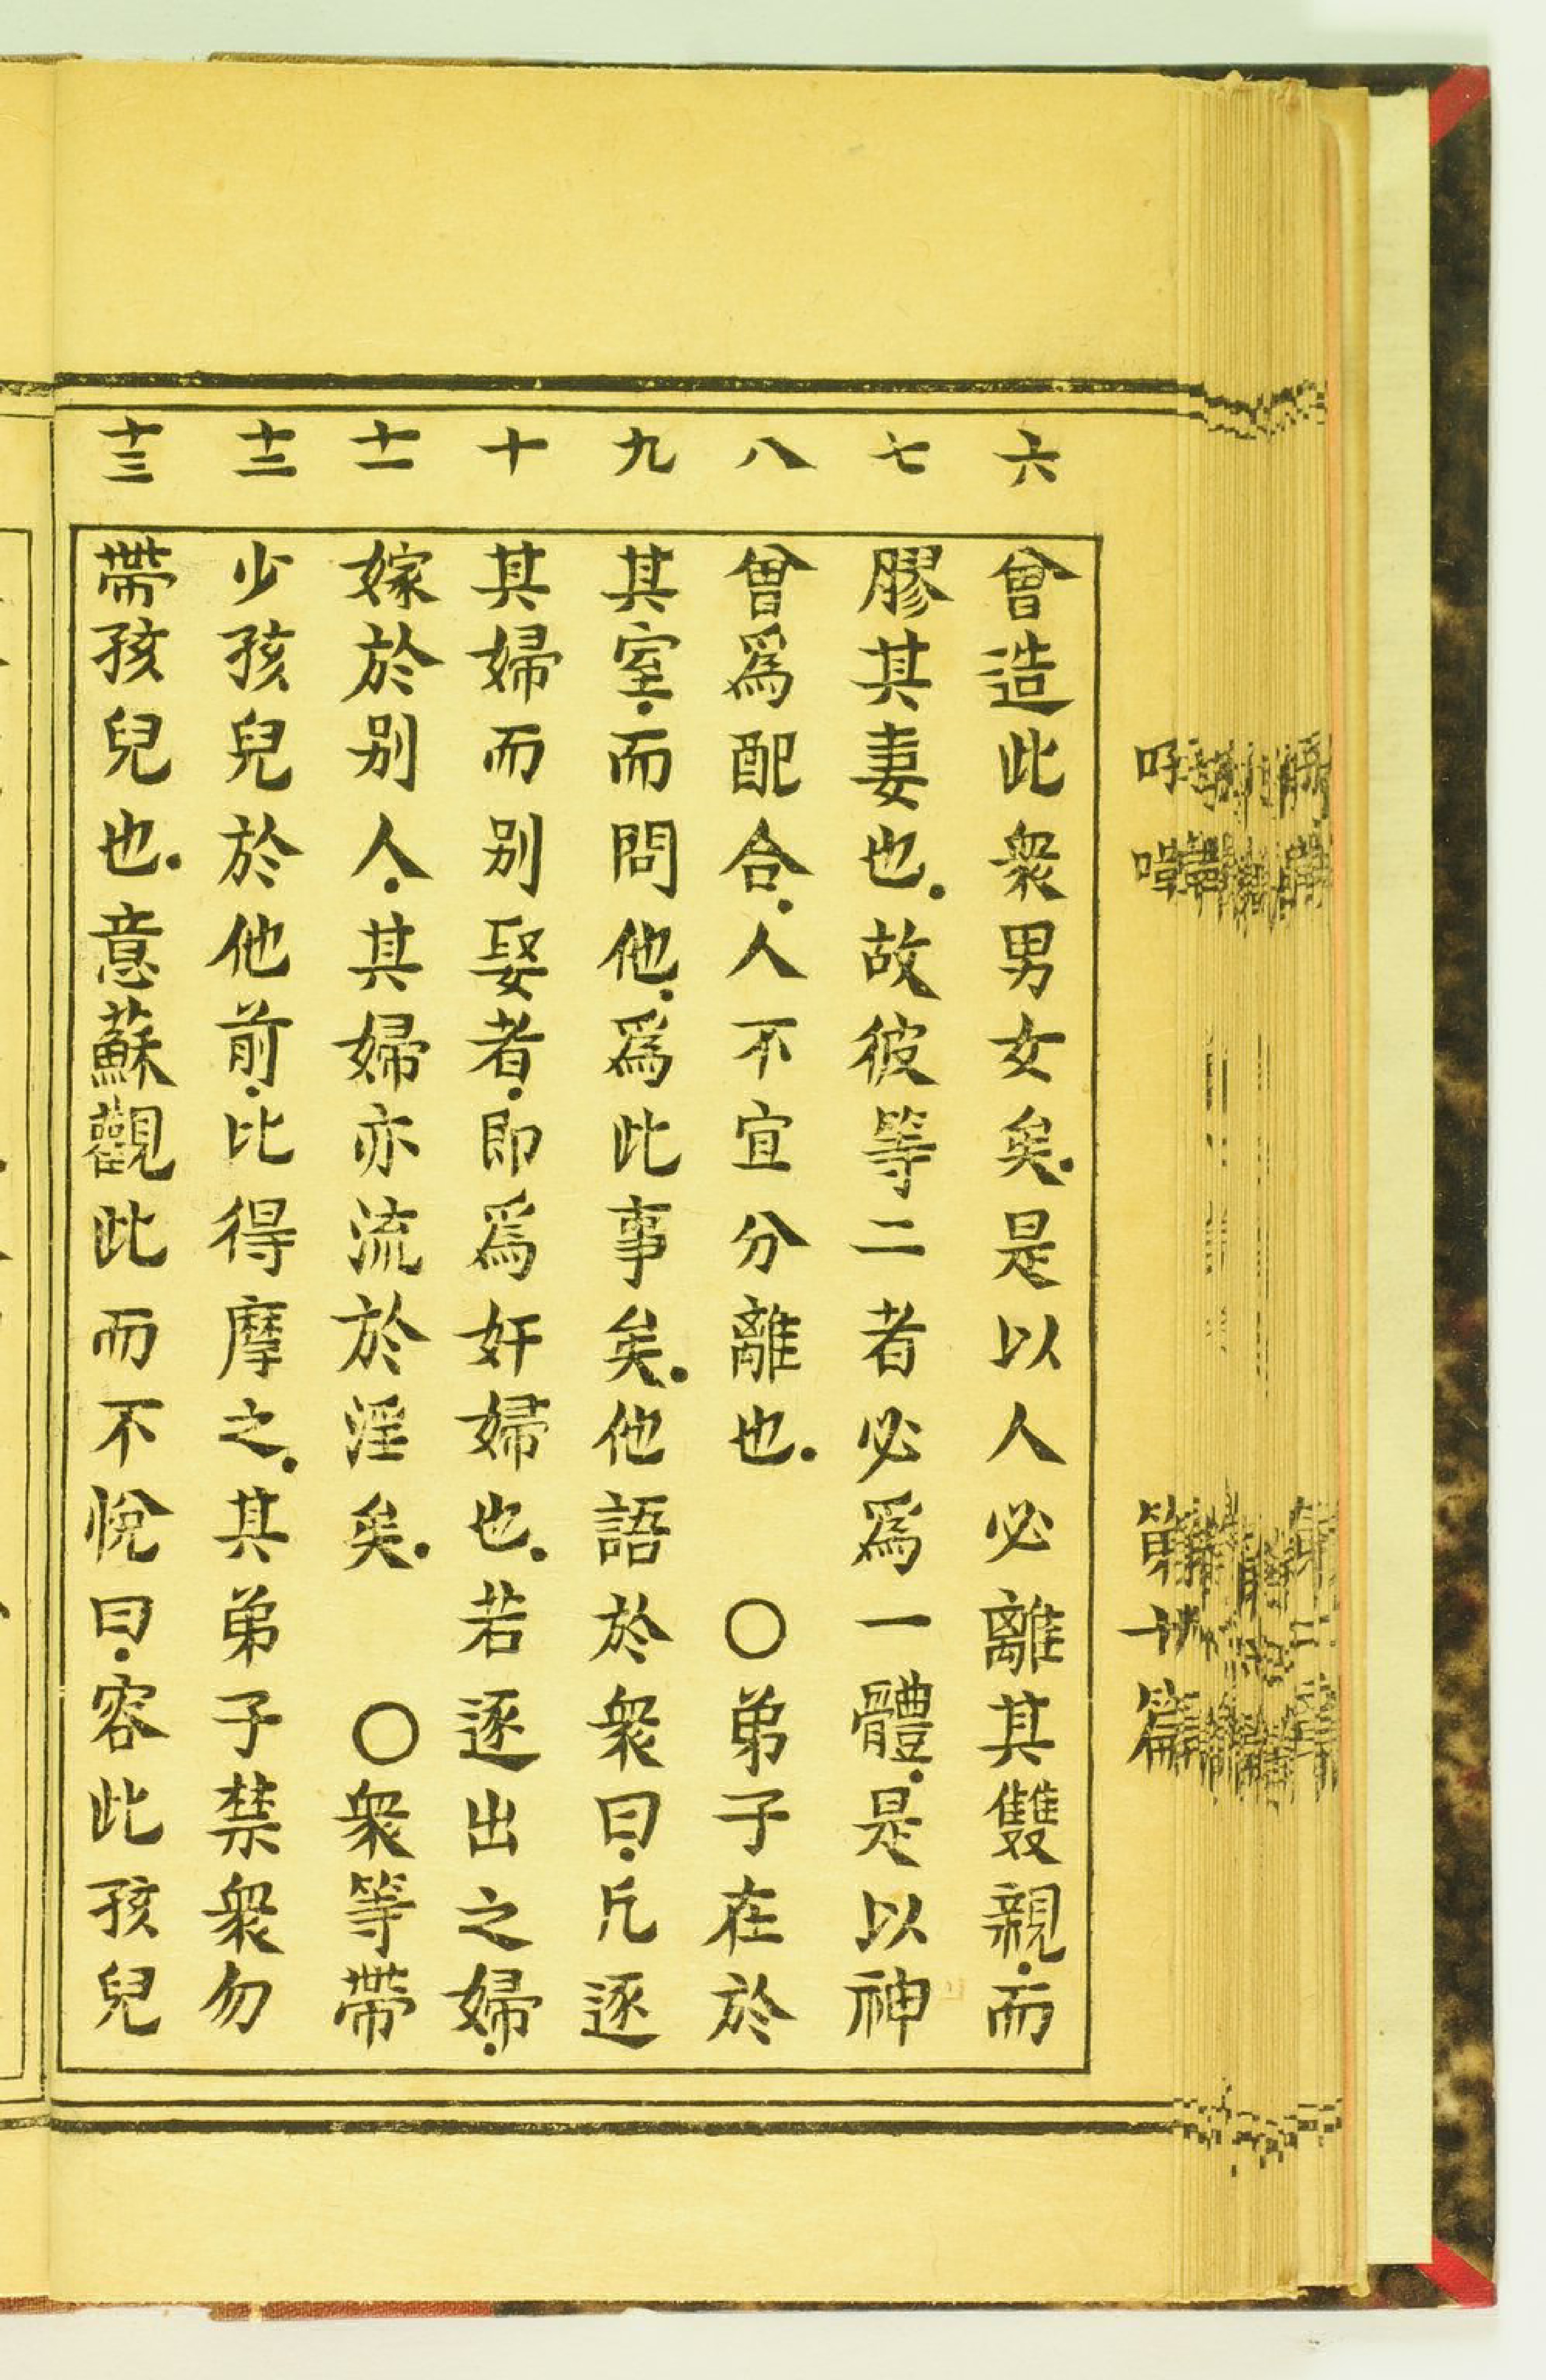 六
會造此衆男女矣.是以人必離其雙親.而
七
膠其妻也.故彼等二者必爲一體.是以神
八
曾爲配合.人不宜分離也. 〇弟子在於
九
其室.而問他.爲此事矣.他語於衆曰.凡逐
十
其婦而别娶者.即爲奸婦也.若逐出之婦.
十一
嫁於别人.其婦亦流於淫矣. 〇衆等帶
十二
少孩兒於他前.比得摩之.其弟子禁衆勿
十三
帶孩兒也.意蘇觀此而不悅曰.容此孩兒